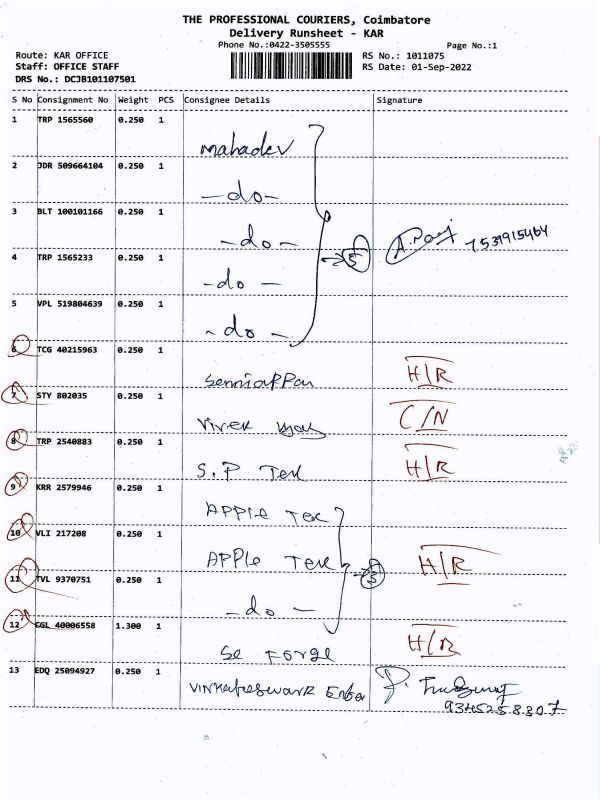 THE PROFESSIONAL COURIERS, Coimbatore
Delivery Runsheet - KAR
Phone No.:0422-3505555 Page No.:1
Route: KAR OFFICE RS No.: 1011075
Staff: OFFICE STAFF RS Date: 01-Sep-2022
DRS No.: DCJB101107501
S No Consignment No Weight PCS Consignee Details Signature
1 TRP 1565560 0.250 1
mahadev
2 JDR 509664104 0.250 1
-do-
3 BLT 100101166 0.250 1
-do- 5 7539915464
4 TRP 1565233 0.250 1
-do-
5 VPL 519804639 0.250 1
-do-
6 TCG 40215963 0.250 1
H/R
7 STY 802035 0.250 1
Vivek C/N
8 TRP 2540883 0.250 1
S.P Tex H/R
9 KRR 2579946 0.250 1
APPle Tex
10 VLI 217208 0.250 1
APPle Tex H/R
11 TVL 9370751 0.250 1 3
-do-
12 CGL 40006558 1.300 1
Se Forge H/R
13 EDQ 25094927 0.250 1
9345258307